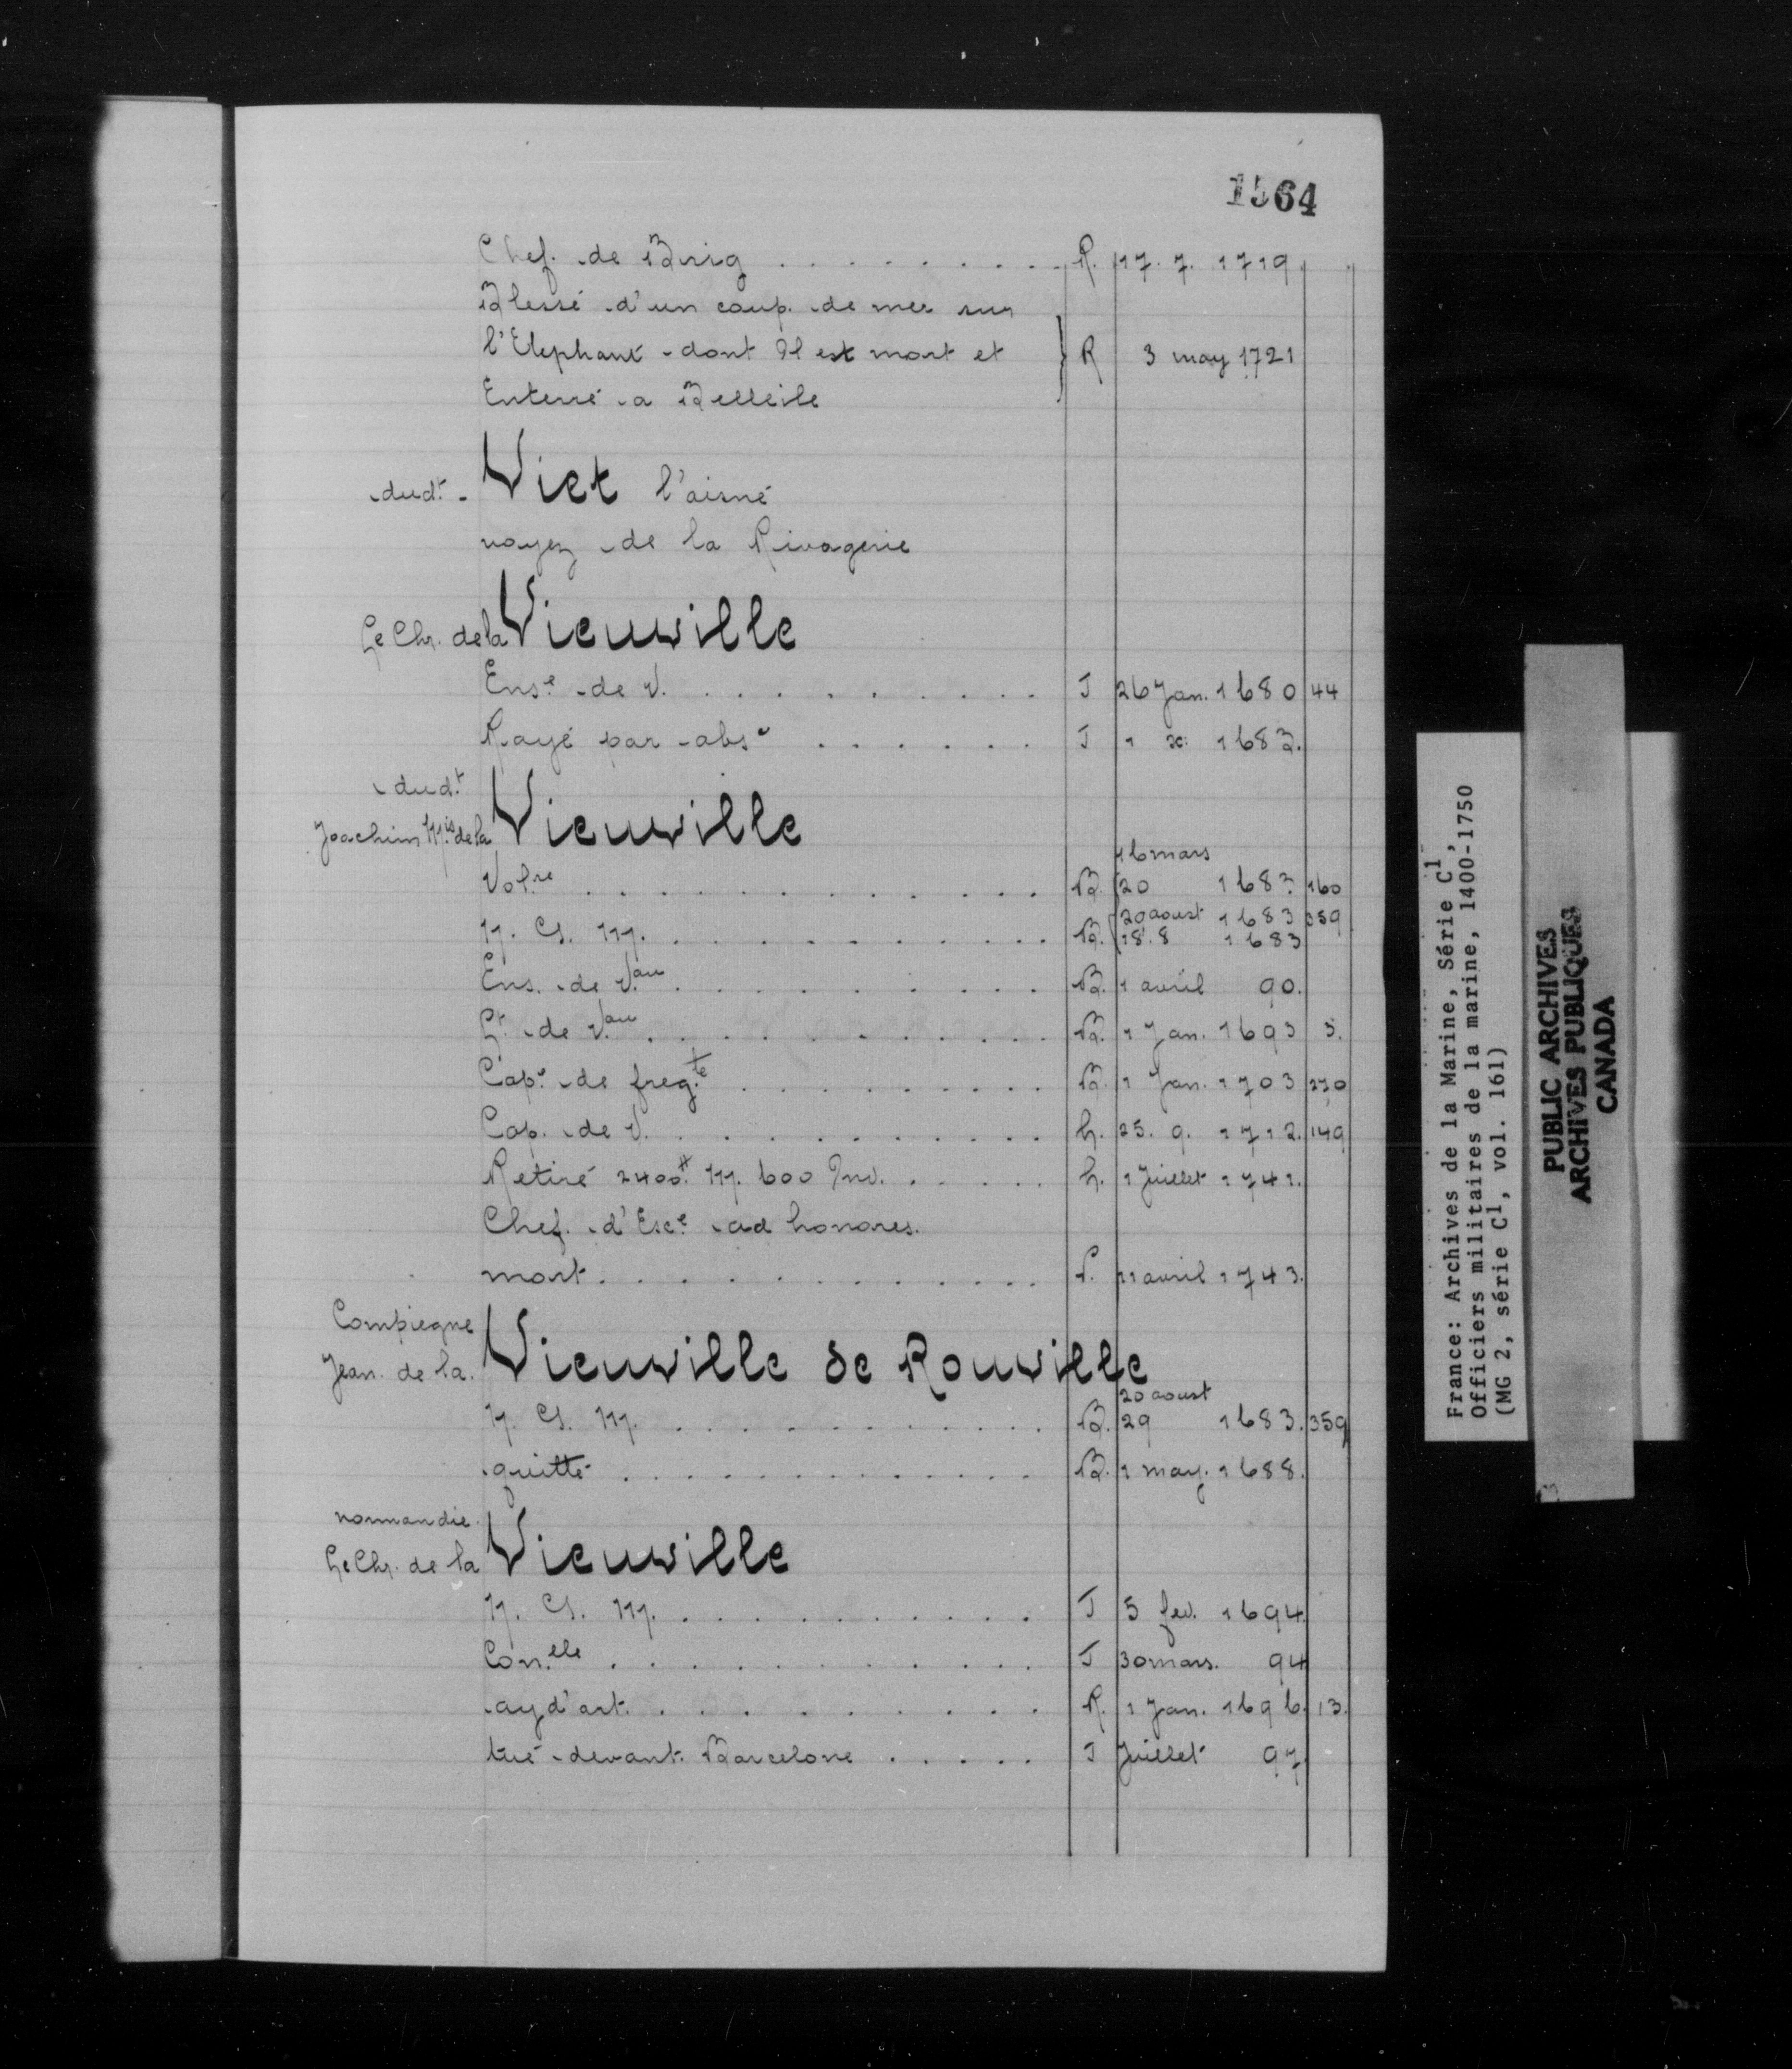 1564
Chef. de Brig . . . . . . . . . R. 17. 7. 1719
Blessé d'un coup de mer sur
l'Elephant dont Il est mort et R 3 may 1721
Enterré a Belleile
dudt. Viet l'aisné
voyez de la Rivagerie
Le Chr. de la Vieuville
Ense de V. . . . . . . . . . J 26 Jan. 1680 44
Rayé par abse . . . . . . J 1 x: 1682.
dudt
Joachim Mis de la Vieuville
16 mars
Volre . . . . . . . . . . . B. 20 1682 160
20 aoust 1683 359
G. M. . . . . . . . . . . B. 18. 8 1683
Ens. de Vau . . . . . . . . . B. 1 avril 90.
Lt de Vau . . . . . . . . . . B. 1 Jan. 1693 3.
Cape de fregte . . . . . . . . B. 1 Jan. 1703 270
Cap. de V. . . . . . . . . . . h. 25. 9. 1712. 149
Retiré 2400# M. 600 Inv. . . . . . h. 1 Juillet 1741.
Chef. d'Esce ad honores.
mort . . . . . . . . . . . . 11 avril 1743.
Compiegne
Jean de la Vieuville de Rouville
20 aoust
G. M. . . . . . . . . . . B. 29 1683. 359
quitté . . . . . . . . . . . B. 1 may. 1688.
normandie
Le Chr. de la Vieuville
G. M. . . . . . . . . . . J 5 fev. 1694.
Con.lle . . . . . . . . . . . J 30 mars. 94
ayd'art. . . . . . . . . . . R. 1 Jan. 1696. 13.
tué devant Barcelone . . . . . J Juillet 97
France: Archives de la Marine, Série C1,
Officiers militaires de la marine, 1400-1750
(MG 2, série C1, vol. 161)
PUBLIC ARCHIVES
ARCHIVES PUBLIQUES
CANADA